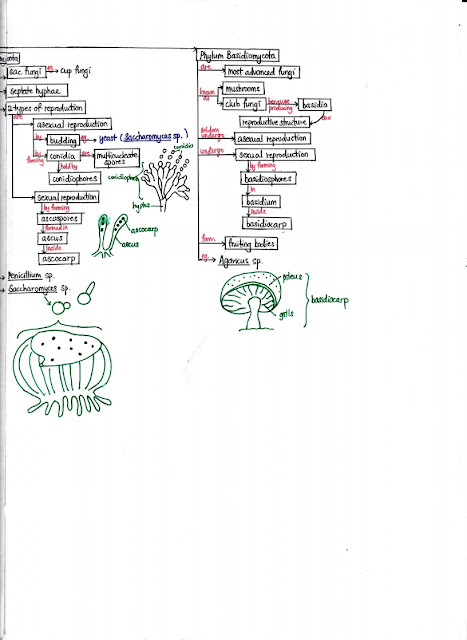 mycota
sac fungi eg cup fungi
septate hyphae
2 types of reproduction
are
asexual reproduction
by
budding eg yeast (Saccharomyces sp.)
by forming
conidia are multinucleate spores
held by
conidiophores
conidia
conidiophore
hypha
sexual reproduction
by forming
ascuspores
formed in
ascus
inside
ascocarp
ascocarp
ascus
Penicillium sp.
Saccharomyces sp.
Phylum Basidiomycota
are
most advanced fungi
known as
mushrooms
club fungi because producing basidia
are
reproductive structure
seldom undergo
asexual reproduction
undergo
sexual reproduction
by forming
basidiophores
in
basidium
inside
basidiocarp
form
fruiting bodies
eg
Agaricus sp.
pileus
gills
basidiocarp